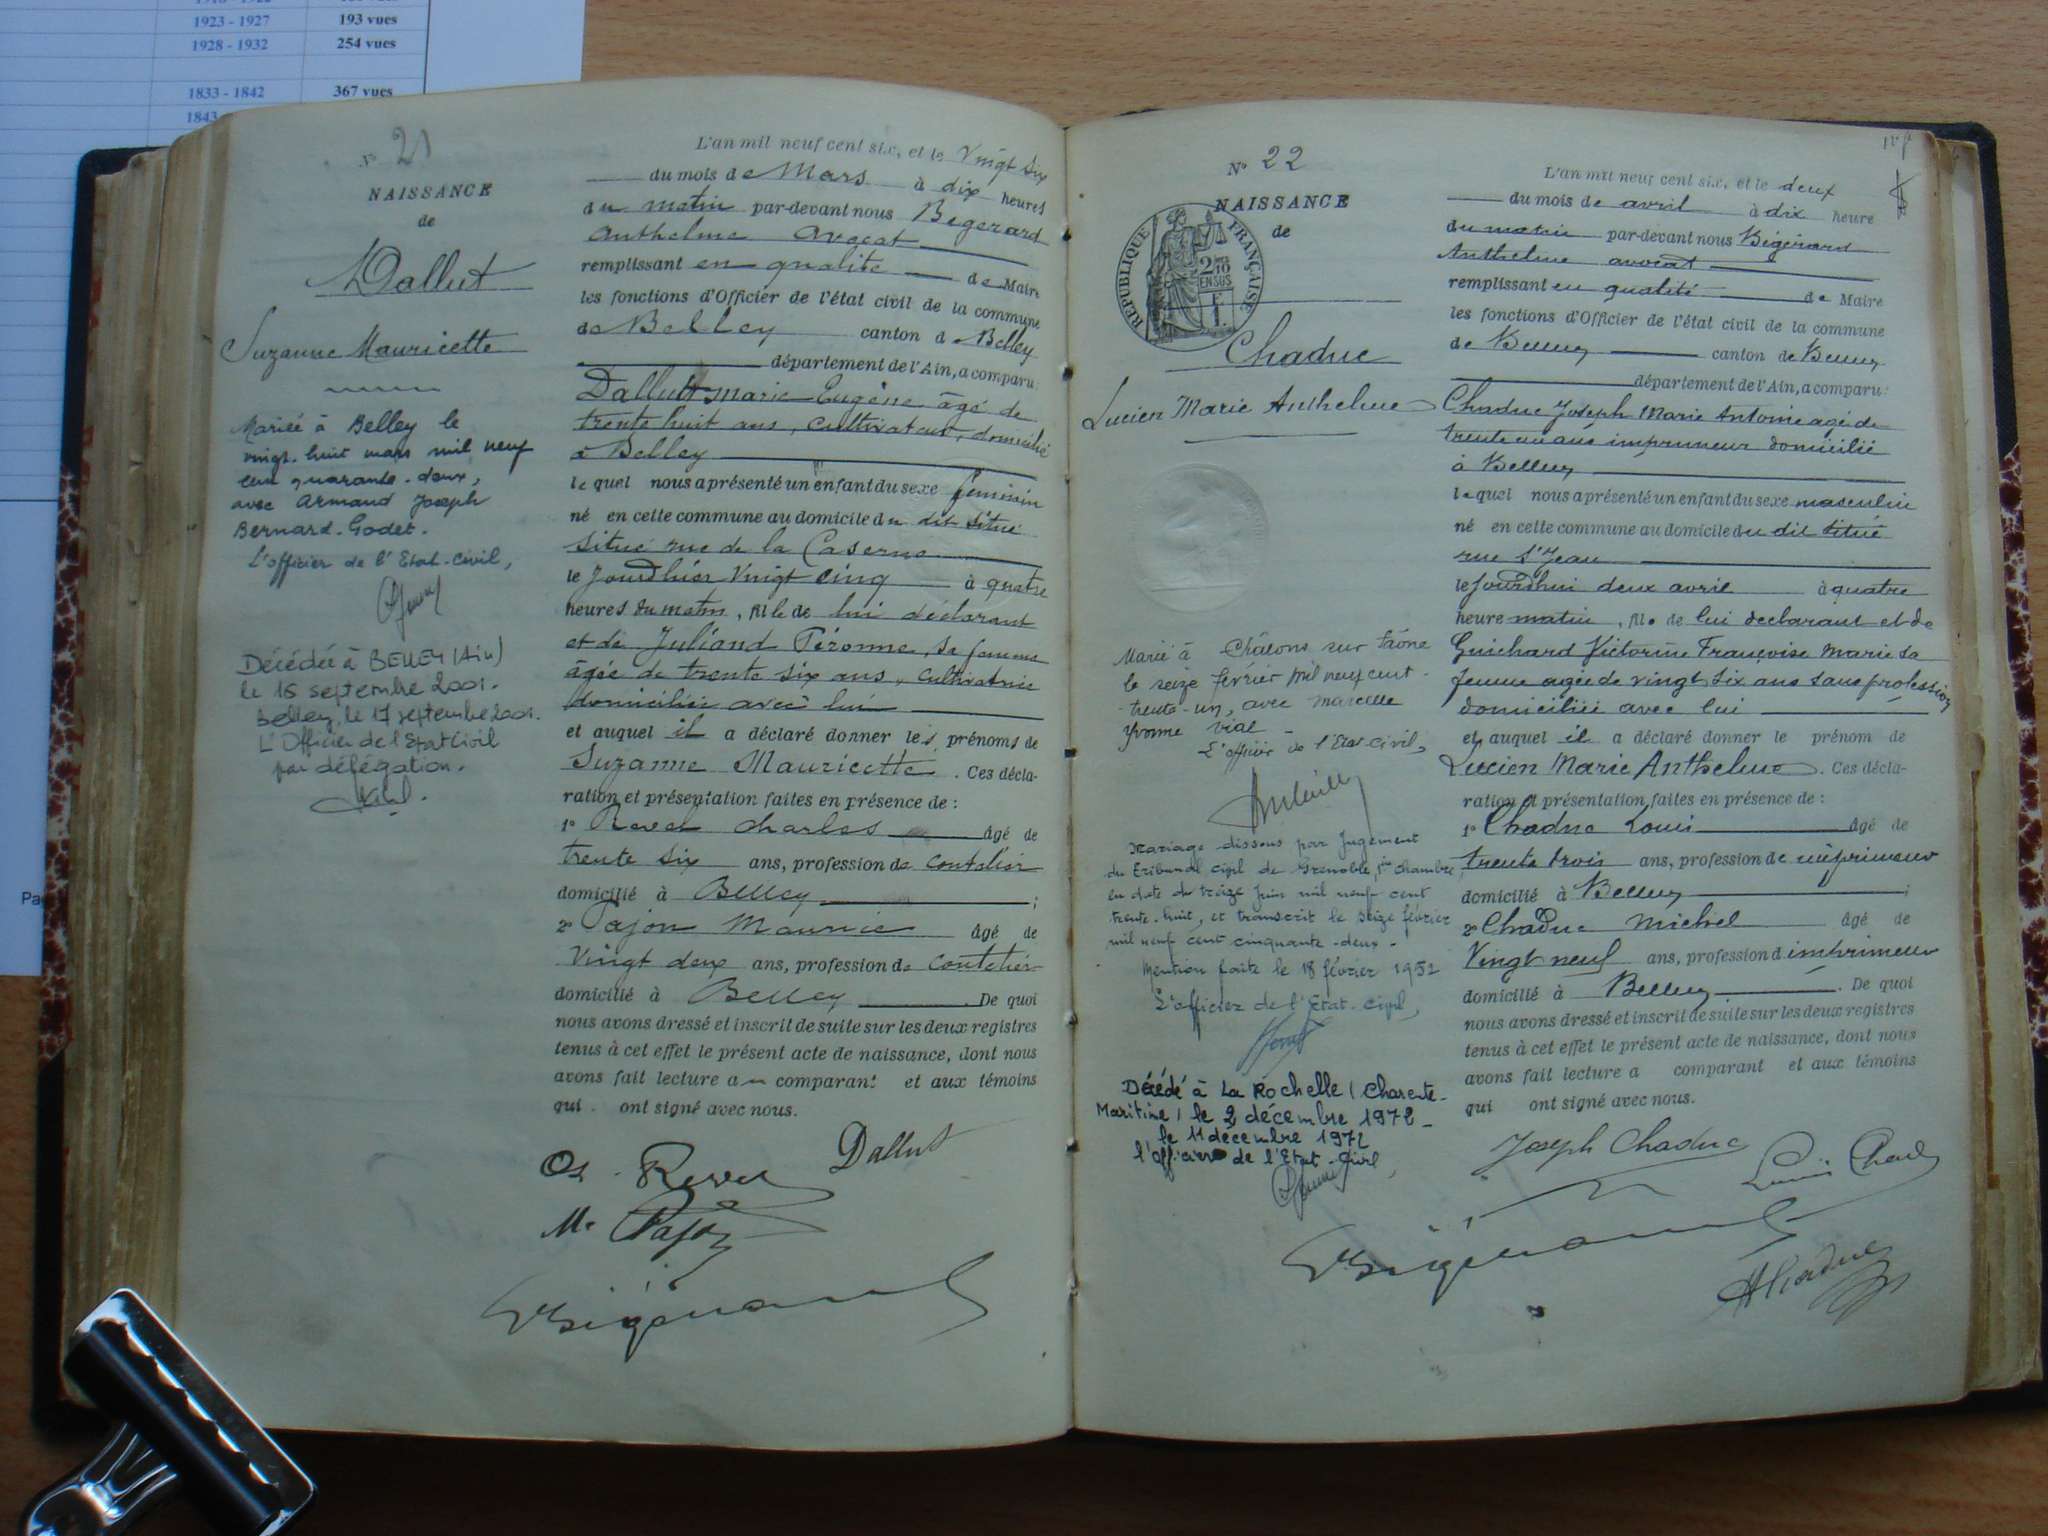 1923 - 1927 193 vues
1928 - 1932 254 vues
1833 - 1842 367 vues
1843
N° 21
NAISSANCE
de
Dallut
Suzanne Mauricette
Mariée à Belley le
vingt-huit mars mil neuf
cent quarante-deux,
avec Armand Joseph
Bernard-Godet.
L'officier de l'Etat-Civil,
Décédée à BELLEY (Ain)
le 16 septembre 2001.
Belley, le 17 septembre 2001.
L'Officier de l'Etat Civil
par délégation.
L'an mil neuf cent six, et le Vingt Six
du mois de Mars à dix heures
du matin par-devant nous Bégérard
Anthelme avocat
remplissant en qualité de Maire
les fonctions d'Officier de l'état civil de la commune
de Belley canton de Belley
département de l'Ain, a comparu:
Dallut marie Eugène âgé de
trente huit ans, cultivateur, domicilié
à Belley
lequel nous a présenté un enfant du sexe feminin
né en cette commune au domicile du dit situé
situé rue de la Caserne
le Jourdhier Vingt cinq à quatre
heures du matin, fille de lui déclarant
et de Juliand Péronne, sa femme
âgée de trente six ans, cultivatrice
domiciliée avec lui
et auquel il a déclaré donner les prénoms de
Suzanne Mauricette. Ces décla-
ration et présentation faites en présence de :
1° Revel Charles âgé de
trente six ans, profession de coutelier
domicilié à Belley ;
2° Pajon Maurice âgé de
Vingt deux ans, profession de coutelier
domicilié à Belley. De quoi
nous avons dressé et inscrit de suite sur les deux registres
tenus à cet effet le présent acte de naissance, dont nous
avons fait lecture au comparant et aux témoins
qui ont signé avec nous.
Ch. Revel Dallut
M. Pajon
Bégérard
N° 22
NAISSANCE
de
RÉPUBLIQUE FRANÇAISE
2/10
EN SUS
Chaduc
Lucien Marie Anthelme
Marié à Châlons sur Saône
le seize février mil neuf cent
trente-un, avec Marcelle
Yvonne Vial
L'officier de l'Etat Civil,
Mariage dissous par Jugement
du Tribunal civil de Grenoble, 1ère chambre,
en date du treize Juin mil neuf cent
trente-huit, et transcrit le seize février
mil neuf cent cinquante-deux -
Mention faite le 18 février 1952
L'officier de l'Etat-civil,
Décédé à La Rochelle (Charente-
Maritime) le 2 décembre 1972_
le 11 décembre 1972
l'officier de l'Etat-Civil,
L'an mil neuf cent six, et le deux
du mois de avril à dix heure
du matin par-devant nous Bégérard
Anthelme avocat
remplissant en qualité de Maire
les fonctions d'Officier de l'état civil de la commune
de Belley canton de Belley
département de l'Ain, a comparu:
Chaduc Joseph Marie Antoine agé de
trente un ans imprimeur domicilié
à Belley
lequel nous a présenté un enfant du sexe masculin
né en cette commune au domicile du dit situé
rue St Jean
le jourdhui deux avril à quatre
heure matin, fils de lui declarant et de
Guichard Victorine Françoise Marie sa
femme agée de vingt six ans sans profession
domiciliée avec lui
et auquel il a déclaré donner le prénom de
Lucien Marie Anthelme. Ces décla-
ration et présentation faites en présence de :
1° Chaduc Louis âgé de
trente trois ans, profession de imprimeur
domicilié à Belley ;
2° Chaduc Michel âgé de
Vingt neuf ans, profession d imprimeur
domicilié à Belley. De quoi
nous avons dressé et inscrit de suite sur les deux registres
tenus à cet effet le présent acte de naissance, dont nous
avons fait lecture a comparant et aux témoins
qui ont signé avec nous.
Joseph Chaduc
Louis Chaduc
Bégérard
Chaduc